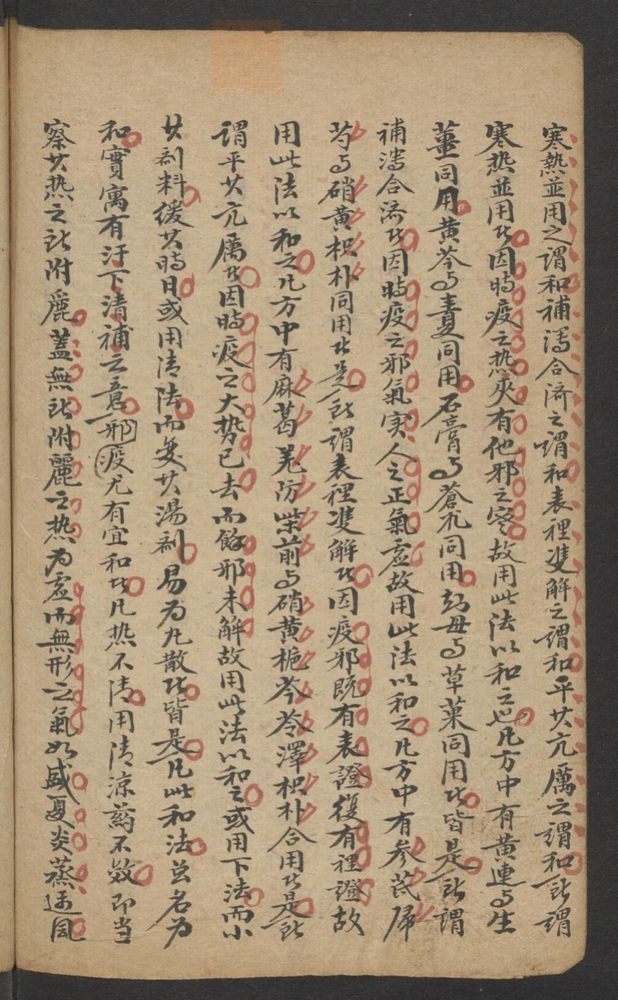 寒熱並用之謂和補瀉合濟之謂和表裡雙解之謂和平其亢厲之謂和所謂
寒热並用者因時疫之热夾有他邪之寒故用此法以和之也凡方中有黄連与生
薑同用黄芩与半夏同用石膏与蒼朮同用知母与草菓同用者皆是所謂
補瀉合济者因時疫之邪氣实人之正氣虛故用此法以和之凡方中有參芪歸
芍与硝黄枳朴同用者是所謂表裡雙解者因疫邪既有表證復有裡證故
用此法以和之凡方中有麻葛羌防柴前与硝黄栀芩苓澤枳朴合用者是所
謂平其亢厲者因時疫之大势已去而餘邪未解故用此法以和之或用下法而小
其劑料緩其時日或用清法而变其湯劑易为丸散者皆是凡此和法虽名为
和實寓有汗下清補之意邪疫尤有宜和者凡热不清用清凉药不效即当
察其热之所附麗蓋無所附麗之热为虛而無形之氣如盛夏炎蒸遇風